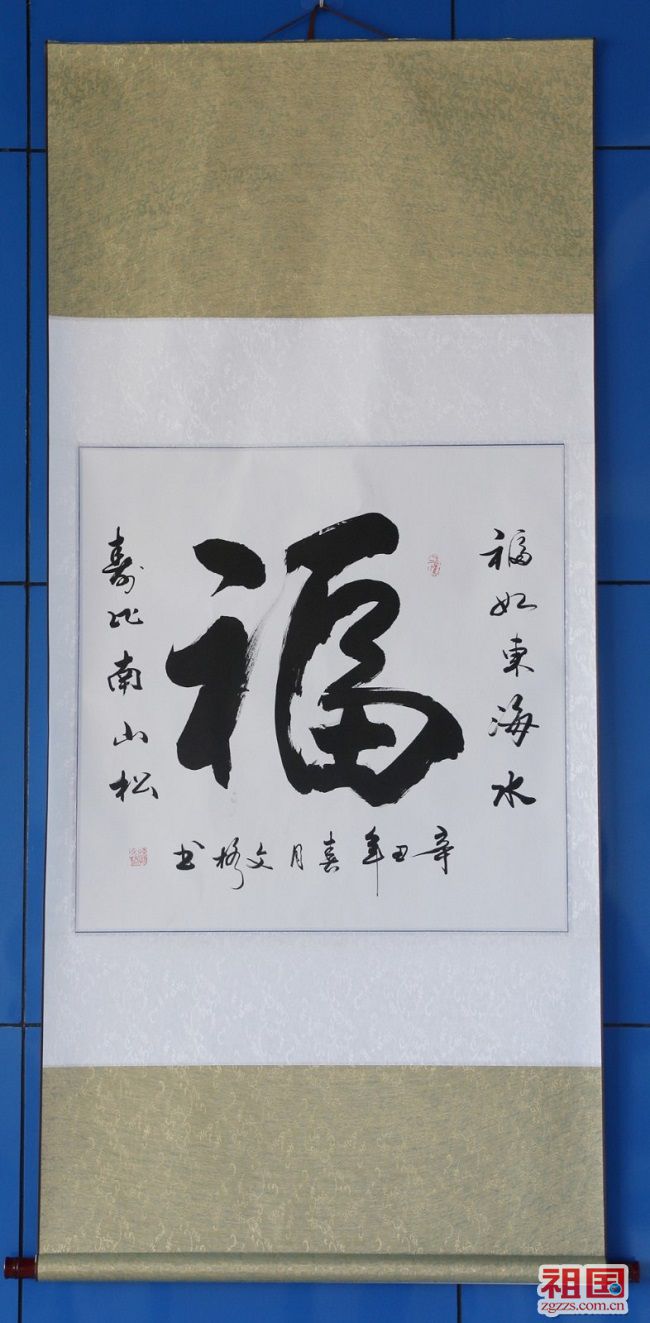 福如東海水
福
寿比南山松
辛丑年喜月文书
祖国
zgzzs.com.cn